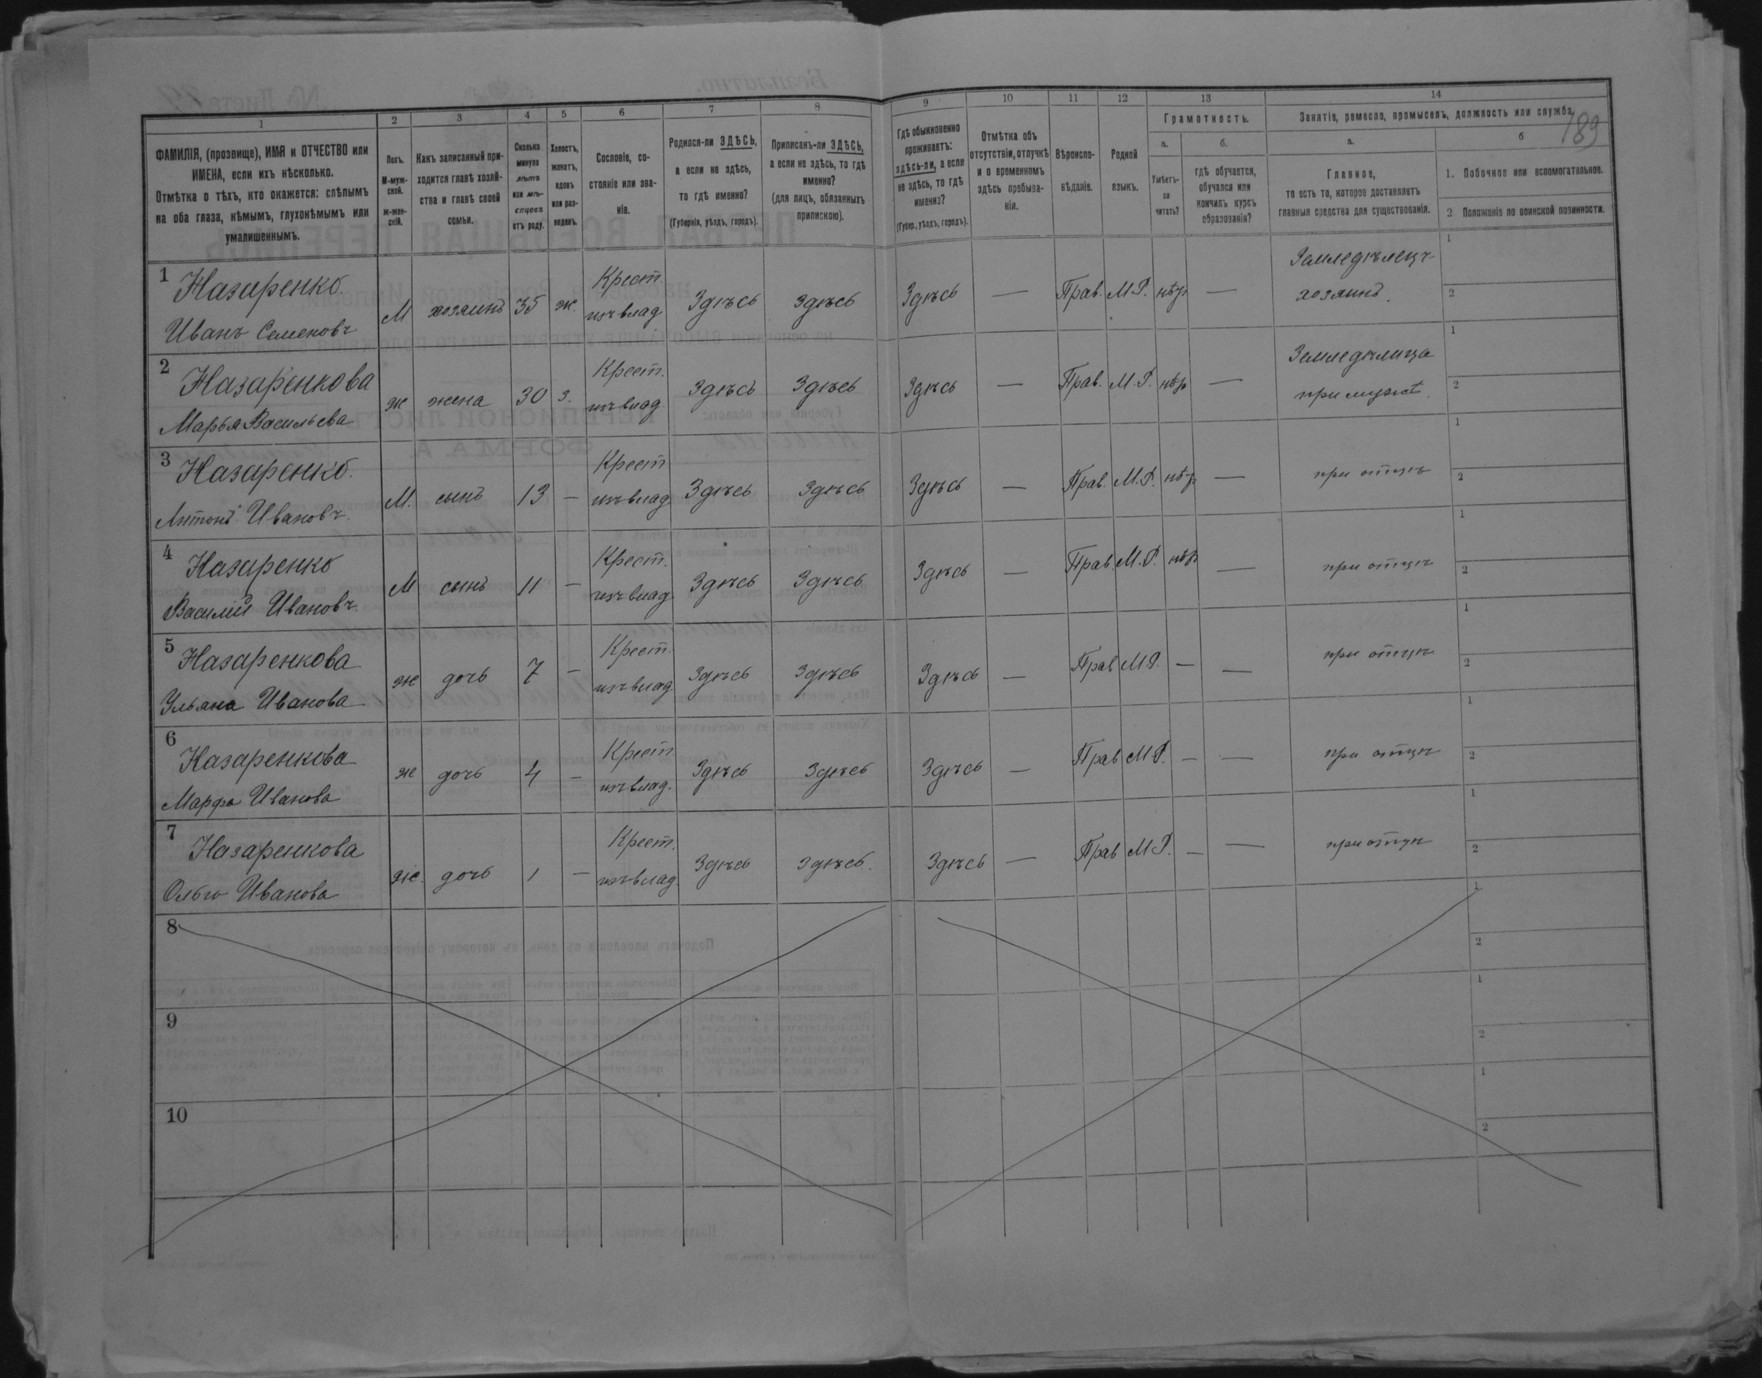 189
1
2
3
4
5
6
7
8
9
10
11
12
13
14
ФАМИЛІЯ, (прозвище), ИМЯ и ОТЧЕСТВО или
ИМЕНА, если ихъ нѣсколько.
Отмѣтка о тѣхъ, кто окажется: слѣпымъ
на оба глаза, нѣмымъ, глухонѣмымъ или
умалишеннымъ.
Полъ.
М-муж-
ской.
ж-жен-
скій.
Какъ записанный при-
ходится главѣ хозяй-
ства и главѣ своей
семьи.
Сколько
минуло
лѣтъ
или мѣ-
сяцевъ
отъ роду.
Холостъ,
женатъ,
вдовъ
или раз-
веденъ.
Сословіе, со-
стояніе или зва-
ніе.
Родился-ли ЗДѢСЬ,
а если не здѣсь,
то гдѣ именно?
(Губернія, уѣздъ, городъ).
Приписанъ-ли ЗДѢСЬ,
а если не здѣсь, то гдѣ
именно?
(для лицъ, обязанныхъ
припискою).
Гдѣ обыкновенно
проживаетъ:
здѣсь-ли, а если
не здѣсь, то гдѣ
именно?
(Губер., уѣздъ, городъ).
Отмѣтка объ
отсутствіи, отлучкѣ
и о временномъ
здѣсь пребыва-
ніи.
Вѣроиспо-
вѣданіе.
Родной
языкъ.
Грамотность.
а.
Умѣетъ-
ли
читать?
б.
гдѣ обучается,
обучался или
кончилъ курсъ
образованія?
Занятіе, ремесло, промыселъ, должность или служба.
а.
Главное,
то есть то, которое доставляетъ
главныя средства для существованія.
б
1. Побочное или вспомогательное.
2 Положеніе по воинской повинности.
1 Назаренко Иванъ Семеновъ М хозяинъ 35 ж. Крест. изъ влад Здѣсь Здѣсь Здѣсь — Прав. М.Р. нѣт — Земледѣлецъ хозяинъ. 1 2
2 Назаренкова Марья Васильева ж жена 30 з. Крест. изъ влад Здѣсь Здѣсь Здѣсь — Прав. М.Р. нѣт — Земледѣлица при мужѣ. 1 2
3 Назаренко Антонъ Ивановъ М. сынъ 13 — Крест изъ влад Здѣсь Здѣсь Здѣсь — Прав. М.Р. нѣт — при отцѣ 1 2
4 Назаренко Василій Ивановъ М сынъ 11 — Крест. изъ влад Здѣсь Здѣсь Здѣсь — Прав. М.Р. нѣт — при отцѣ 1 2
5 Назаренкова Ульяна Иванова ж дочь 7 — Крест. изъ влад Здѣсь Здѣсь Здѣсь — Прав М.Р. — — при отцѣ 1 2
6 Назаренкова Марфа Иванова ж дочь 4 — Крест изъ влад. Здѣсь Здѣсь Здѣсь — Прав М.Р. — — при отцѣ 1 2
7 Назаренкова Ольга Иванова ж. дочь 1 — Крест. изъ влад. Здѣсь Здѣсь Здѣсь — Прав М.Р. — — при отцѣ 1 2
8 1 2
9 1 2
10 1 2